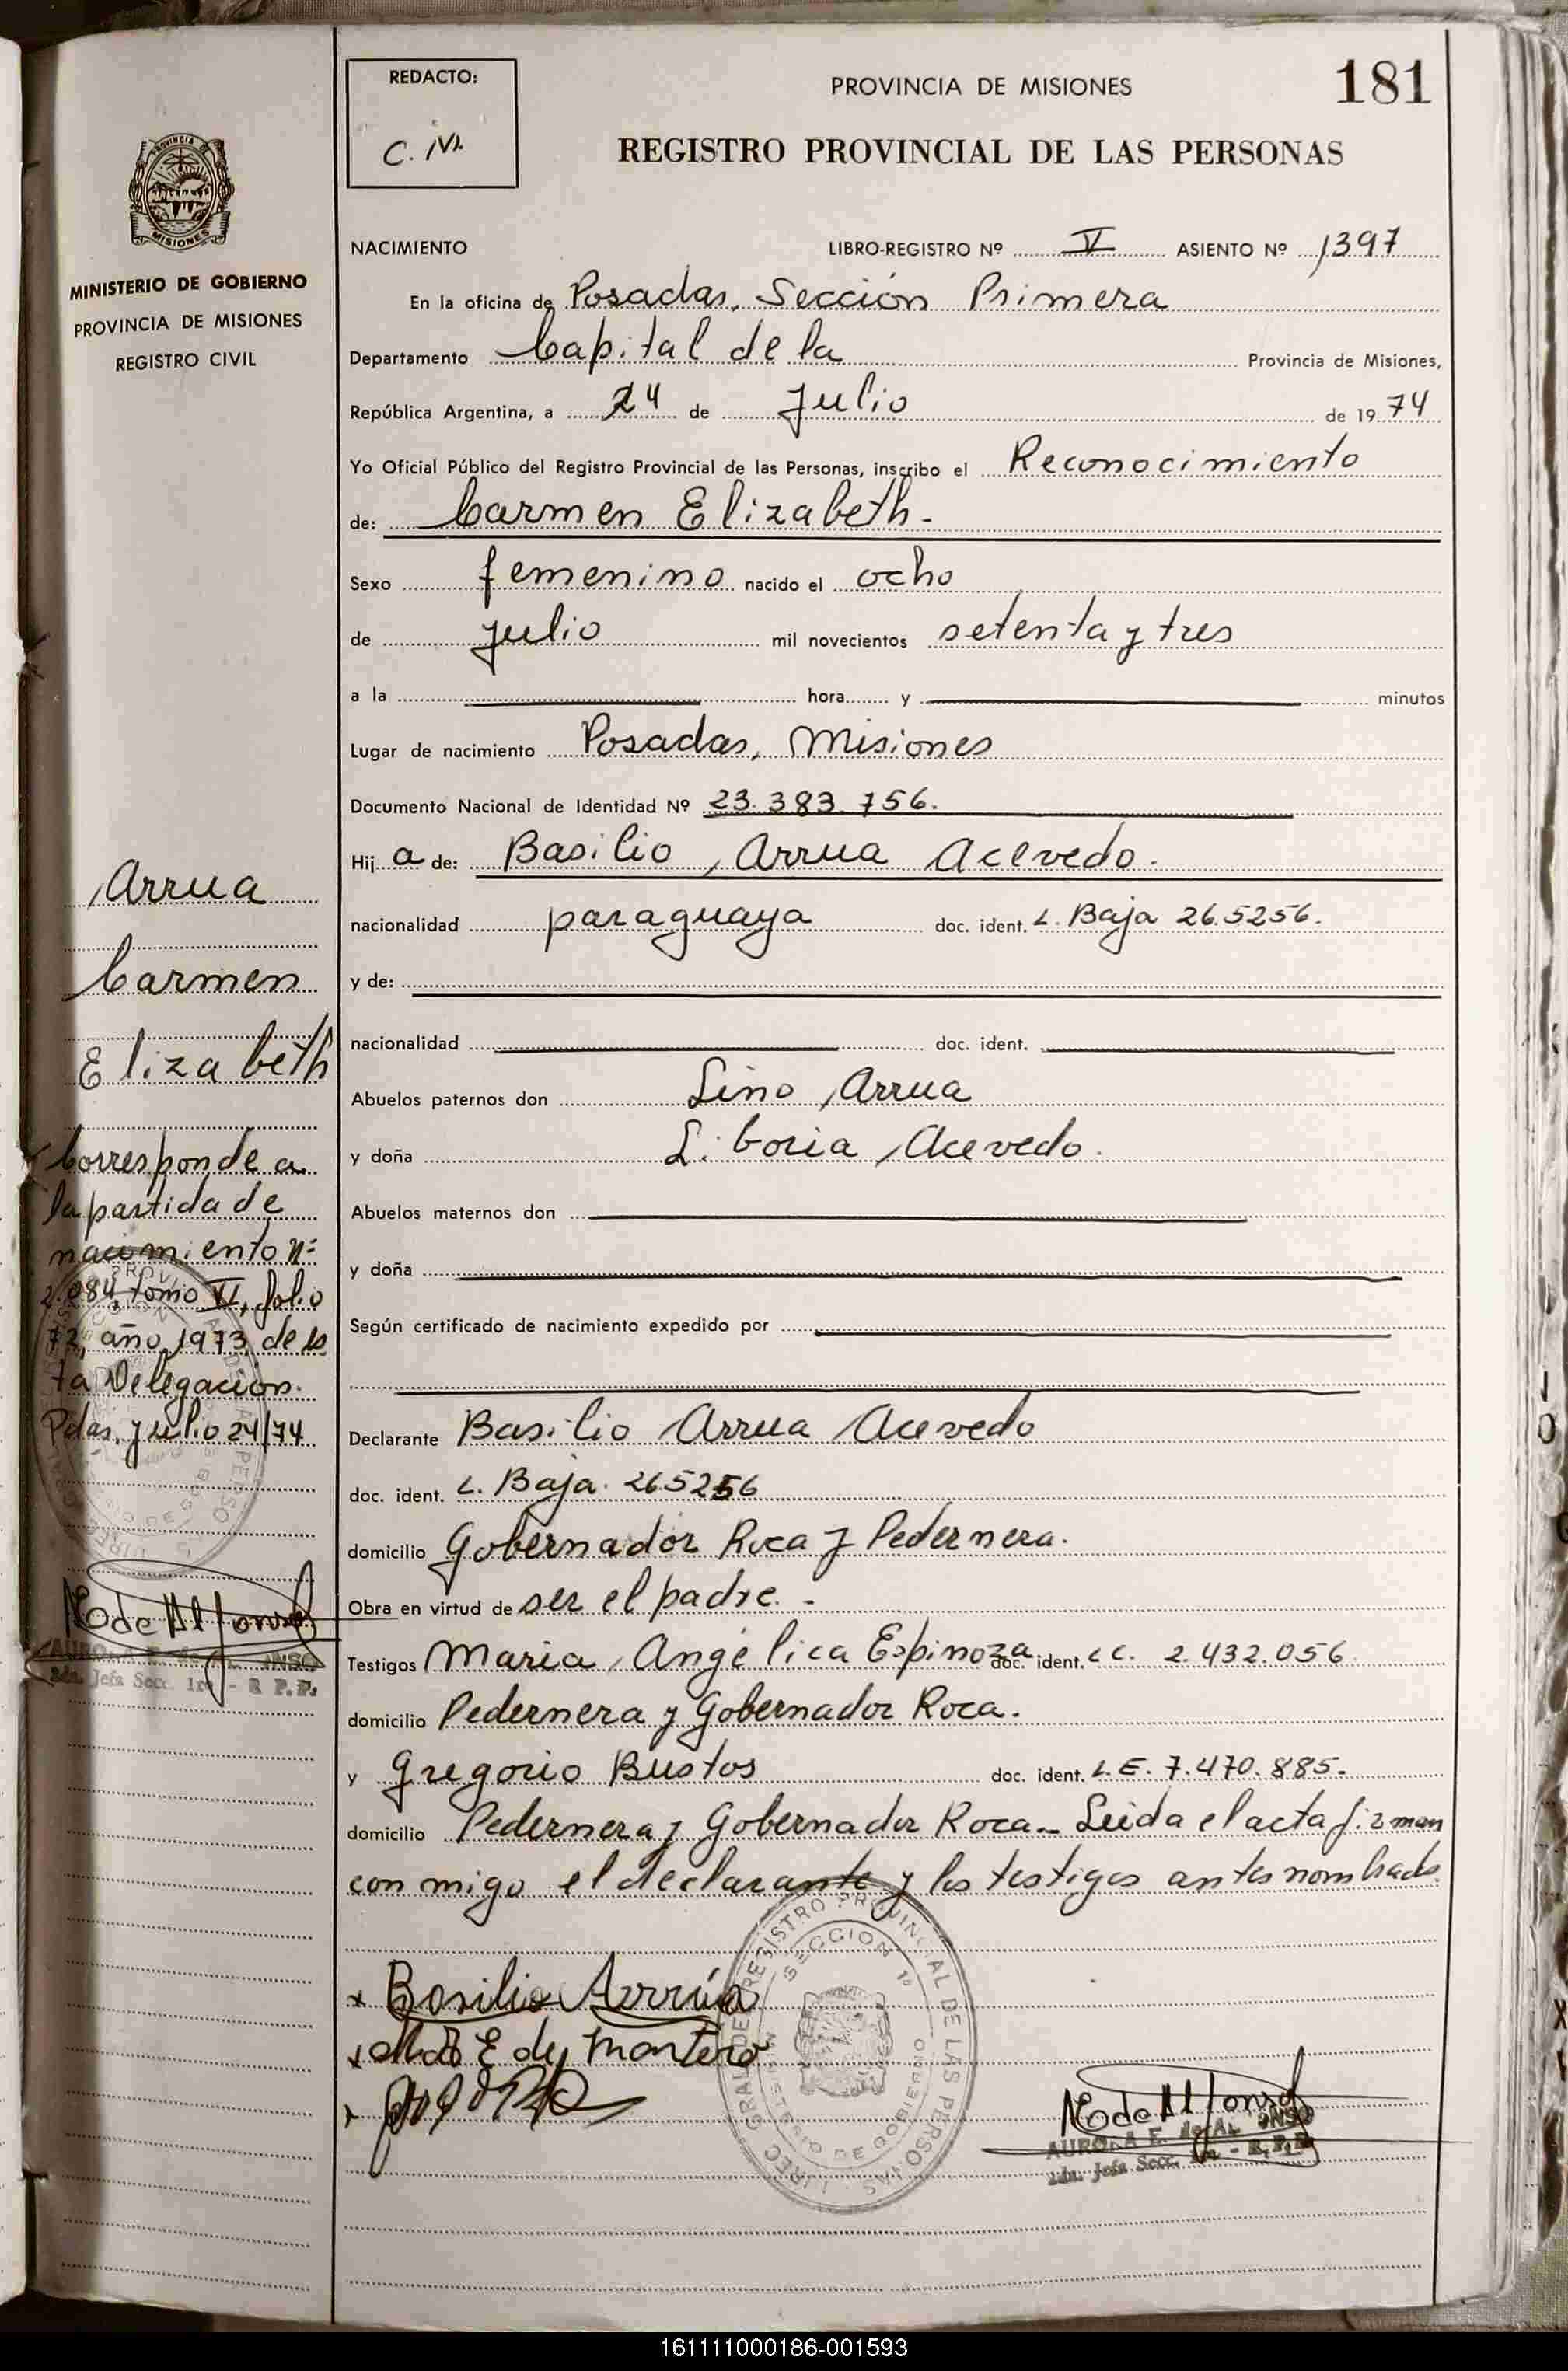 181
REDACTO:
PROVINCIA DE MISIONES
REGISTRO PROVINCIAL DE LAS PERSONAS
MISIONES
MINISTERIO DE GOBIERNO
PROVINCIA DE MISIONES
REGISTRO CIVIL
NACIMIENTO LIBRO-REGISTRO Nº V ASIENTO Nº 1397
En la oficina de Posadas, Sección Primera
Departamento Capital de la Provincia de Misiones,
República Argentina, a 24 de Julio de 1974
Yo Oficial Público del Registro Provincial de las Personas, inscribo el Reconocimiento
de: Carmen Elizabeth.
Sexo femenino nacido el ocho
de julio mil novecientos setenta y tres
a la hora y minutos
Lugar de nacimiento Posadas, Misiones
Documento Nacional de Identidad Nº 23.383.756.
Hij a de: Basilio Arrua Acevedo.
nacionalidad paraguaya doc. ident. L. Baja 265256.
y de:
nacionalidad doc. ident.
Abuelos paternos don Lino Arrua
y doña Liboria Acevedo.
Abuelos maternos don
y doña
Según certificado de nacimiento expedido por
Declarante Basilio Arrua Acevedo
doc. ident. L. Baja. 265256
domicilio Gobernador Roca y Pedernera.
Obra en virtud de ser el padre.-
Testigos Maria Angélica Espinoza doc. ident. CC. 2.432.056
domicilio Pedernera y Gobernador Roca.
y Gregorio Bustos doc. ident. L.E. 7.470.885.
domicilio Pedernera y Gobernador Roca.- Leida el acta firman
con migo el declarante y los testigos antes nombrado.
Arrua
Carmen
Elizabeth
Corresponde a
la partida de
nacimiento Nº
2.084, Tomo VI, folio
72, año 1973, de es
ta Delegación.
Pdas, julio 24/74
x Basilio Arrúa
x E de Montero
x
DIREC. GRAL. DE REGISTRO PROVINCIAL DE LAS PERSONAS
SECCION 1ª
MINISTERIO DE GOBIERNO
AURORA E. de ALFONSO
2da. Jefa Secc. 1ra - R.P.P.
161111000186-001593